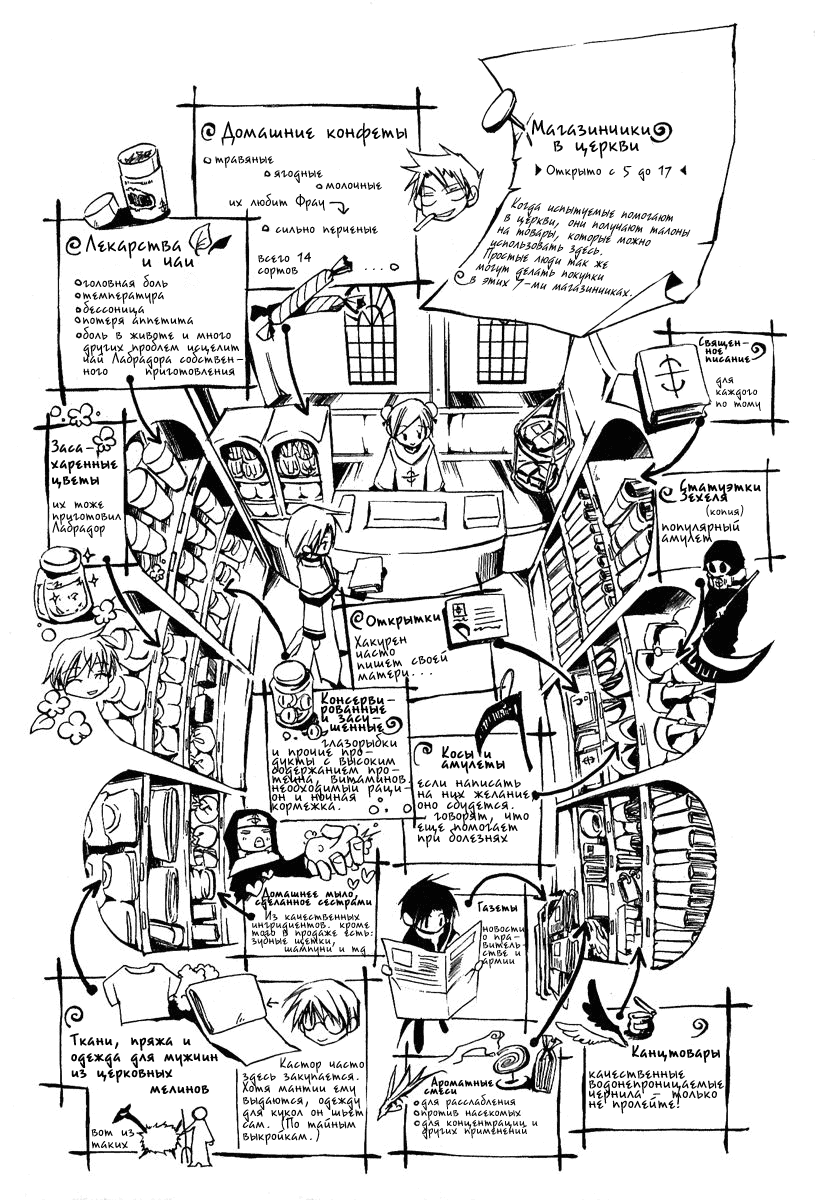 Магазинчики
в церкви
Открыто с 5 до 17
Когда испытуемые помогают
в церкви, они получают талоны
на товары, которые можно
использовать здесь.
Простые люди так же
могут делать покупки
в этих 7-ми магазинчиках.
Домашние конфеты
травяные
ягодные
молочные
их любит Фрау
сильно перченые
всего 14
сортов
....
Лекарства
и чаи
головная боль
температура
бессоница
потеря аппетита
боль в животе и много
других проблем исцелит
чай Лабрадора собствен-
ного приготовления
Священ-
ное
писание
для
каждого
по тому
Заса-
харенные
цветы
их тоже
приготовил
Лабрадор
Статуэтки
Зехеля
(копия)
популярный
амулет
Открытки
Хакурен
часто
пишет своей
матери....
Консерви-
рованные
и засу-
шенные
глазорыбки
и прочие про-
дукты с высоким
содержанием про-
теина, витаминов.
необходимый раци-
он и ночная
кормежка.
Косы и
амулеты
если написать
на них желание,
оно сбудется.
говорят, что
еще помогает
при болезнях
Домашнее мыло,
сделанное сестрами
Из качественных
ингридиентов. кроме
того в продаже есть:
зубные щетки,
шампуни и тд
Газеты
новости
о пра-
витель-
стве и
армии
Ткани, пряжа и
одежда для мужчин
из церковных
мелинов
вот из
таких
Кастор часто
здесь закупается.
Хотя мантии ему
выдаются, одежду
для кукол он шьет
сам. (По тайным
выкройкам.)
Ароматные
смеси
для расслабления
против насекомых
для концентрации и
других применений
Канцтовары
качественные
водонепроницаемые
чернила - только
не пролейте!